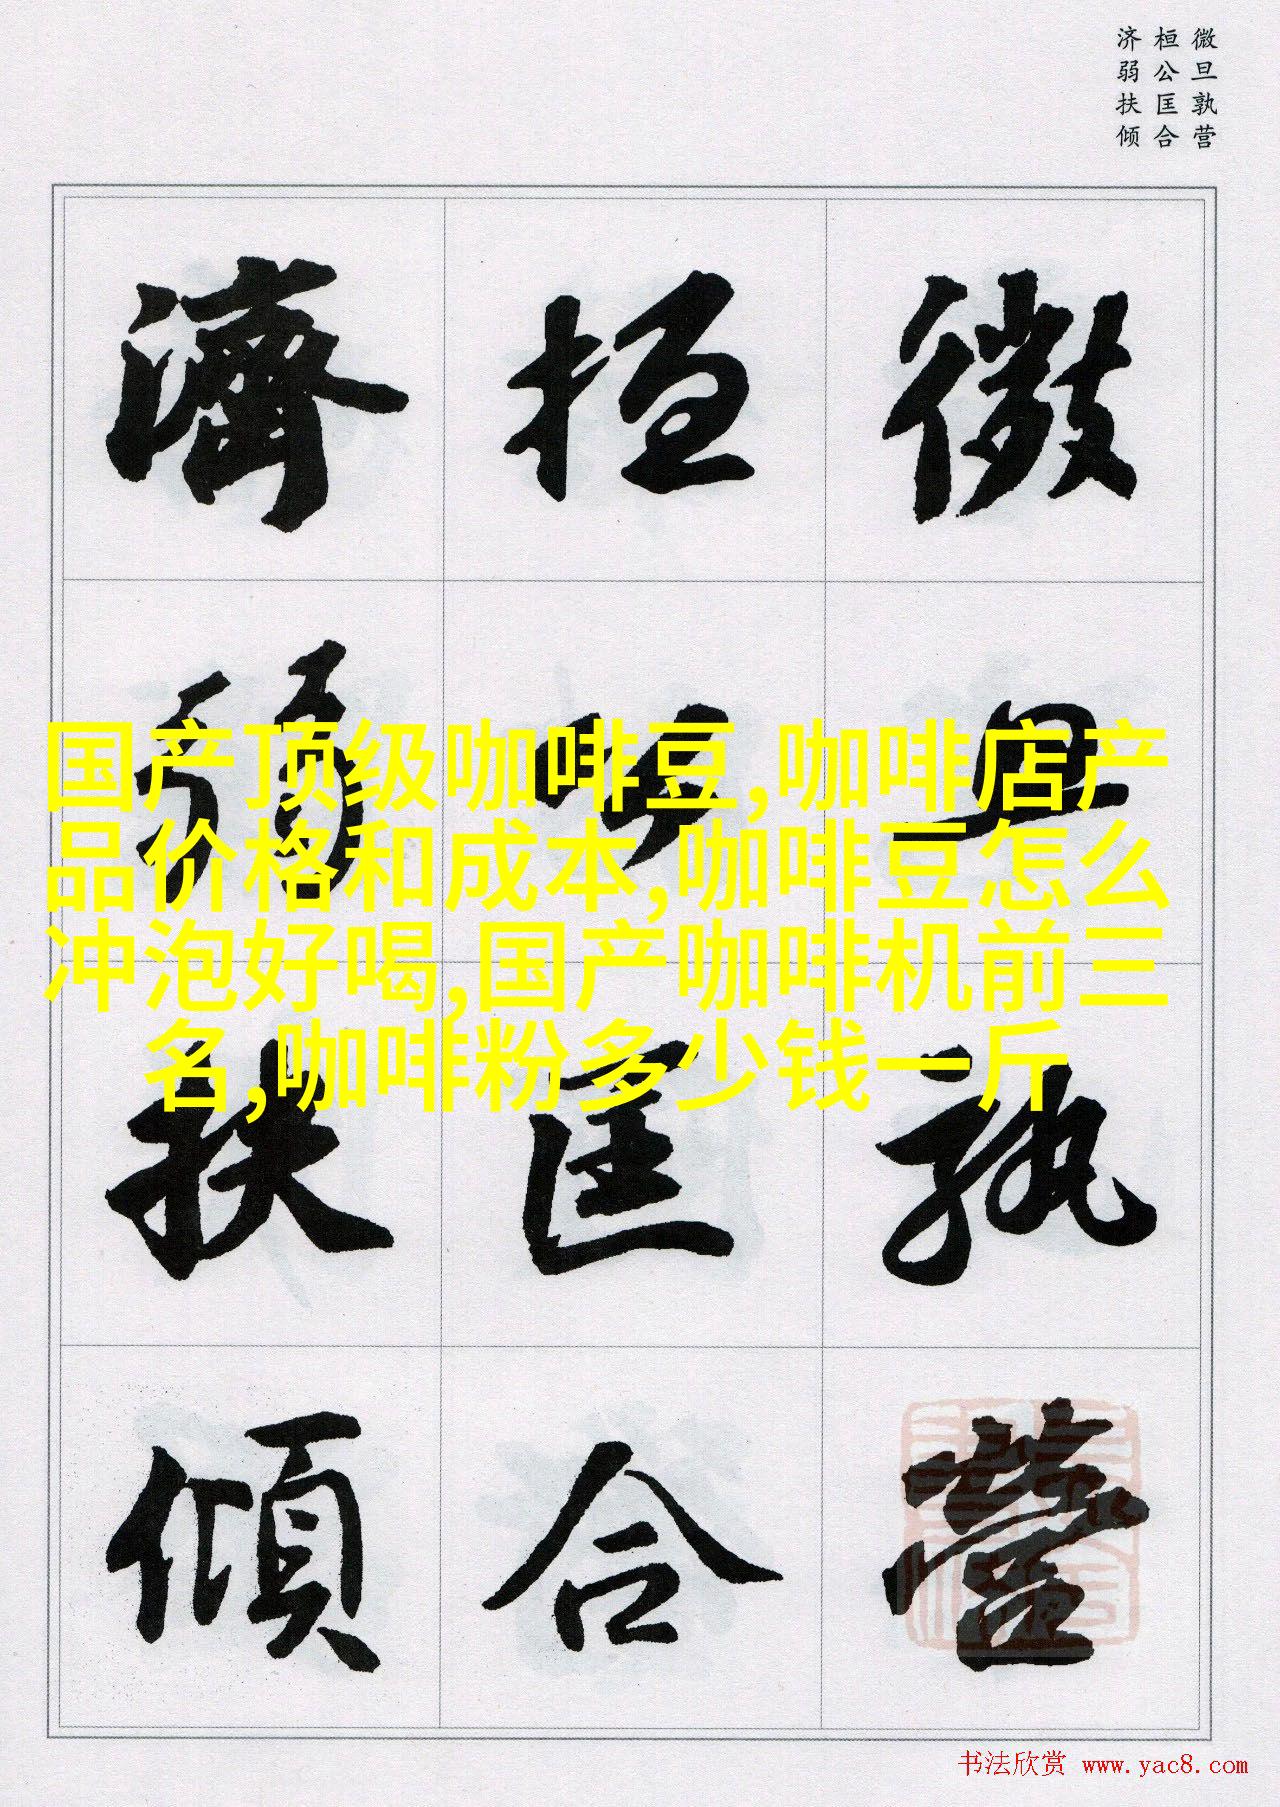 微旦孰营
桓公匡合
济弱扶倾
微旦孰營
桓公匡合
濟弱扶傾
国产顶级咖啡豆,咖啡店产
品价格和成本,咖啡豆怎么
冲泡好喝,国产咖啡机前三
名,咖啡粉多少钱一斤
书法欣赏 www.yac8.com